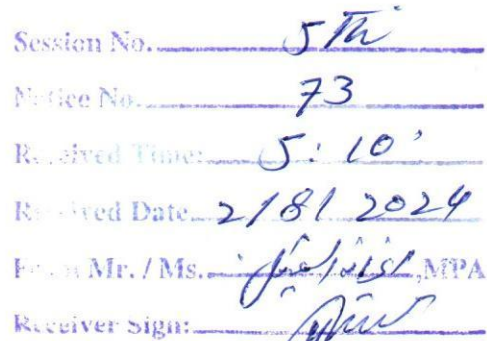 Session No. 5Th
Notice No. 73
Received Time: 5:10'
Received Date. 2/8/2024
From Mr. / Ms. ,MPA
Receiver Sign: